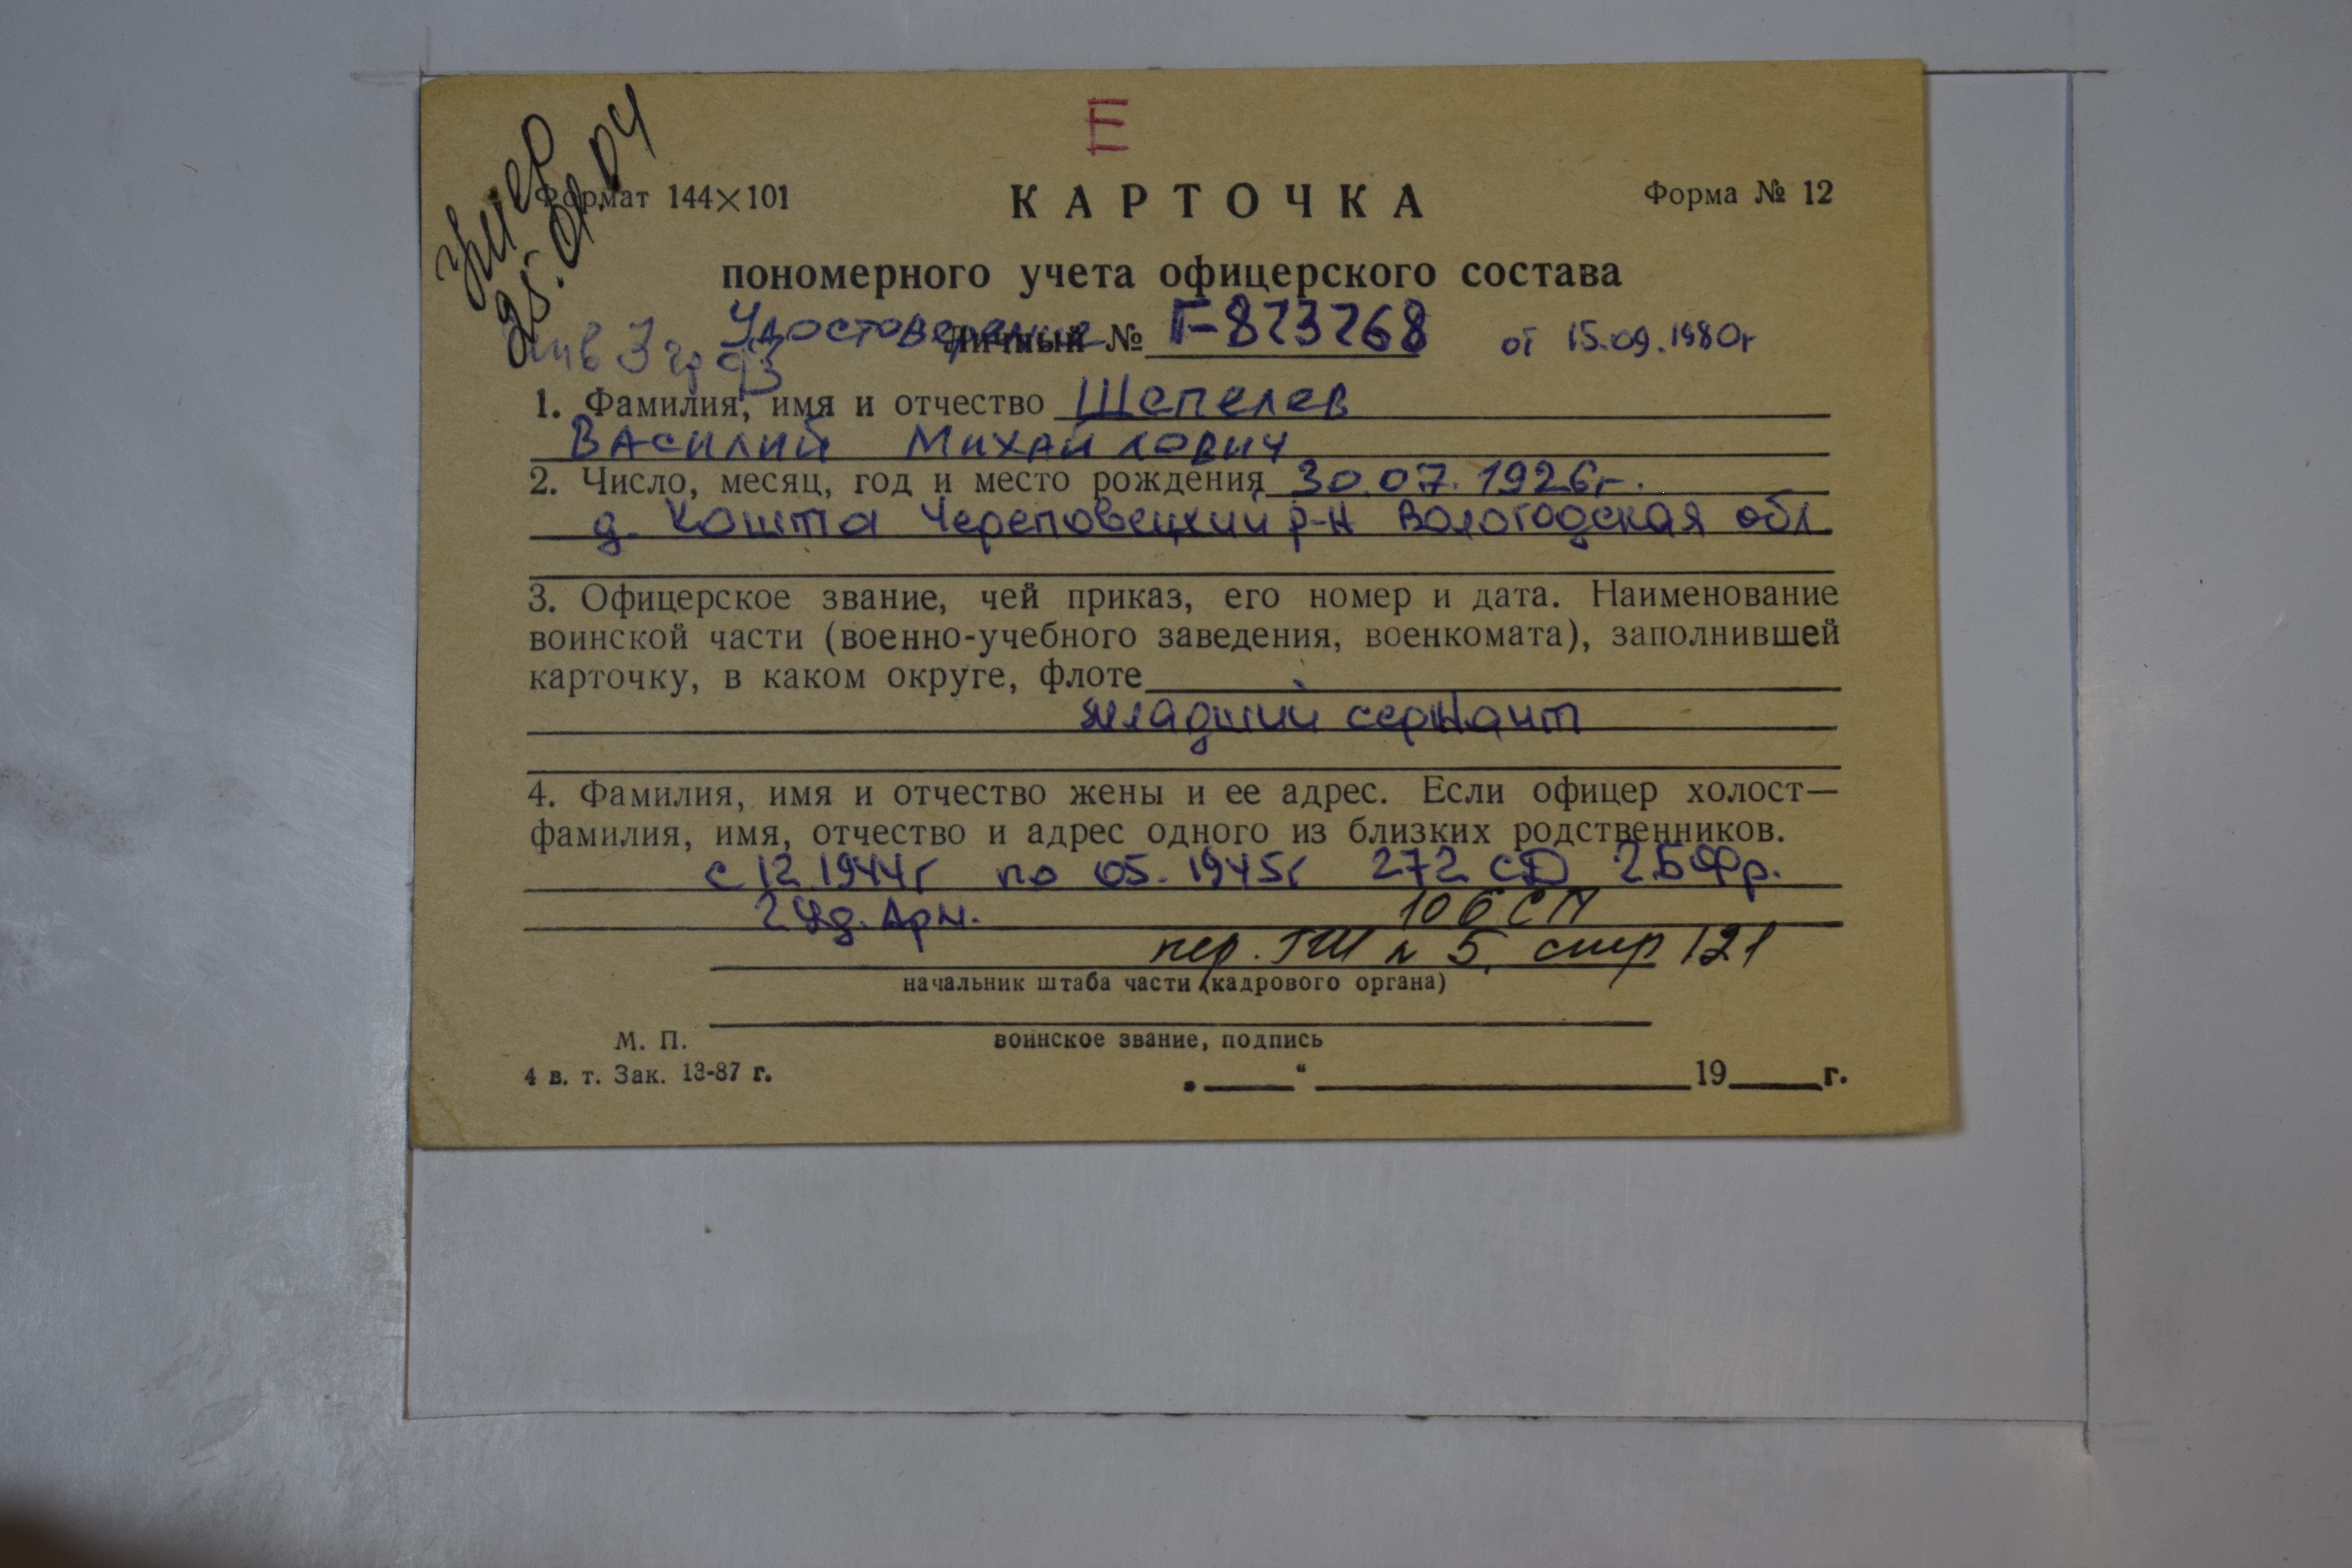 Е
умер
25.01.04
Формат 144×101
КАРТОЧКА
Форма № 12
пономерного учета офицерского состава
Удостоверение
Личный № Г-823268 от 15.09.1980г
инв 3 гр 93
1. Фамилия, имя и отчество Шепелев
Василий Михайлович
2. Число, месяц, год и место рождения 30.07.1926г.
д. Кошта Череповецкий р-н Вологодская обл
3. Офицерское звание, чей приказ, его номер и дата. Наименование
воинской части (военно-учебного заведения, военкомата), заполнившей
карточку, в каком округе, флоте
младший сержант
4. Фамилия, имя и отчество жены и ее адрес. Если офицер холост—
фамилия, имя, отчество и адрес одного из близких родственников.
с 12.1944г по 05.1945г 272 СД 2БФр.
2 Уд. Арм. 106 СП
пер. ГШ № 5, стр 121
начальник штаба части (кадрового органа)
М. П. воинское звание, подпись
4 в. т. Зак. 13-87 г.
„____“ ____________ 19____г.